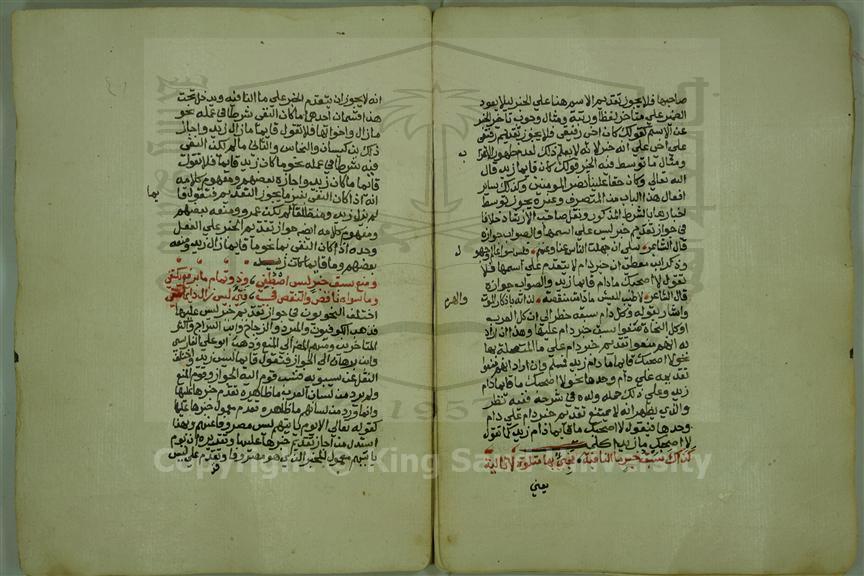 صاحبها فلا يجوز تقديم الاسم هنا علي الخبر ليلا يعود
الضمير علي متاخر لفظا ورتبة ومثال وجوب تأخر الخبر
عن الاسم كقولك كان اخي رفيقي فلا يجوز تقديم رفيقي
علي اخي علي انه خبر لانه لا يعلم ذلك لعدم ظهور الاعراب
ومثال ما توسط فيه الخبر قولك كان قايما زيد قال
الله تعالي وكان حقا علينا نصر المومنين وكذلك ساير
افعال هذا الباب من المتصرف وغيره يجوز توسط
اخبارها بالشرط المذكور ونقل صاحب الارشاد خلافا
في جواز تقديم خبر ليس علي اسمها والصواب جوازه
قال الشاعر سلي ان جهلت الناس عنا وعنهم فليس سواء عالم وجهول
وذكر ابن معطي ان خبر دام لا يتقدم علي اسمها فلا
تقول لا اصحبك ما دام قايما زيد والصواب جوازه
قال الشاعر لا طيب للعيش ما دامت منغصة لذاته بادكار الموت والهرم
واشار بقوله وكل دام سبقه حظر الي ان كل العرب
او كل النحاة منعوا سبق خبر دام عليها وهذا ان اراد
به انهم منعوا تقديم خبر دام علي ما المتصلة بها
نحو لا اصحبك قايما ما دام زيد فمسلم وان اراد انهم منعوا
تقديمه علي دام وحدها نحو لا اصحبك ما قايما دام
زيد وعلي ذلك حمله ولده في شرحه ففيه نظر
والذي يظهر انه لا يمتنع تقديم خبر دام علي دام
وحدها فتقول لا اصحبك ما قايما دام زيد كما تقول
لا اصحبك ما زيدا كلمت
كذاك سبق خبر ما النافية فجئ بها متلوة لا تالية
يعني
انه لا يجوز ان يتقدم الخبر علي ما النافيه ويدخل تحت
هذا قسمان احدهما ما كان النفي شرطا في عمله نحو
ما زال واخواتها فلا تقول قايما ما زال زيد واجاز
ذلك بن كيسان والنحاس والثاني ما لم يكن النفي
فيه شرطا في عمله نحو ما كان زيد قايما فلا تقول
قايما ما كان زيد واجازه بعضهم ومفهوم كلامه
انه اذا كان النفي بغير ما يجوز التقديم فتقول قايما
لم يزل زيد ومنطلقا لم يكن عمرو ومنعه بعضهم
ومفهوم كلامه ايضا جواز تقديم الخبر علي الفعل
وحده اذا كان النفي بما نحو ما قايما زال زيد ومنعه
بعضهم وما قايما كان زيد
ومنع سبق خبر ليس اصطفي وذو تمام ما برفع يكتفي
وما سواه ناقص والنقص في فتي ليس زال دايما قفي
اختلف النحويون في جواز تقديم خبر ليس عليها
فذهب الكوفيون والمبرد والزجاج وابن السراج واكثر
المتاخرين ومنهم المصنف الي المنع وذهب ابو علي الفارسي
وابن برهان الي الجواز فتقول قايما ليس زيد واختلف
النقل عن سيبويه فنسب قوم اليه الجواز وقوم المنع
ولم يرد من لسان العرب ما ظاهره تقدم خبرها عليها
وانما ورد من لسانهم ما ظاهره تقدم معمول خبرها عليها
كقوله تعالي الا يوم ياتيهم ليس مصروفا عنهم وبهذا
استدل من اجاز تقديم خبرها عليها وتقديره ان يوم
ياتيهم معمول للخبر الذي هو مصروفا وتقدم علي ليس
Copyright © King Saud University
1957